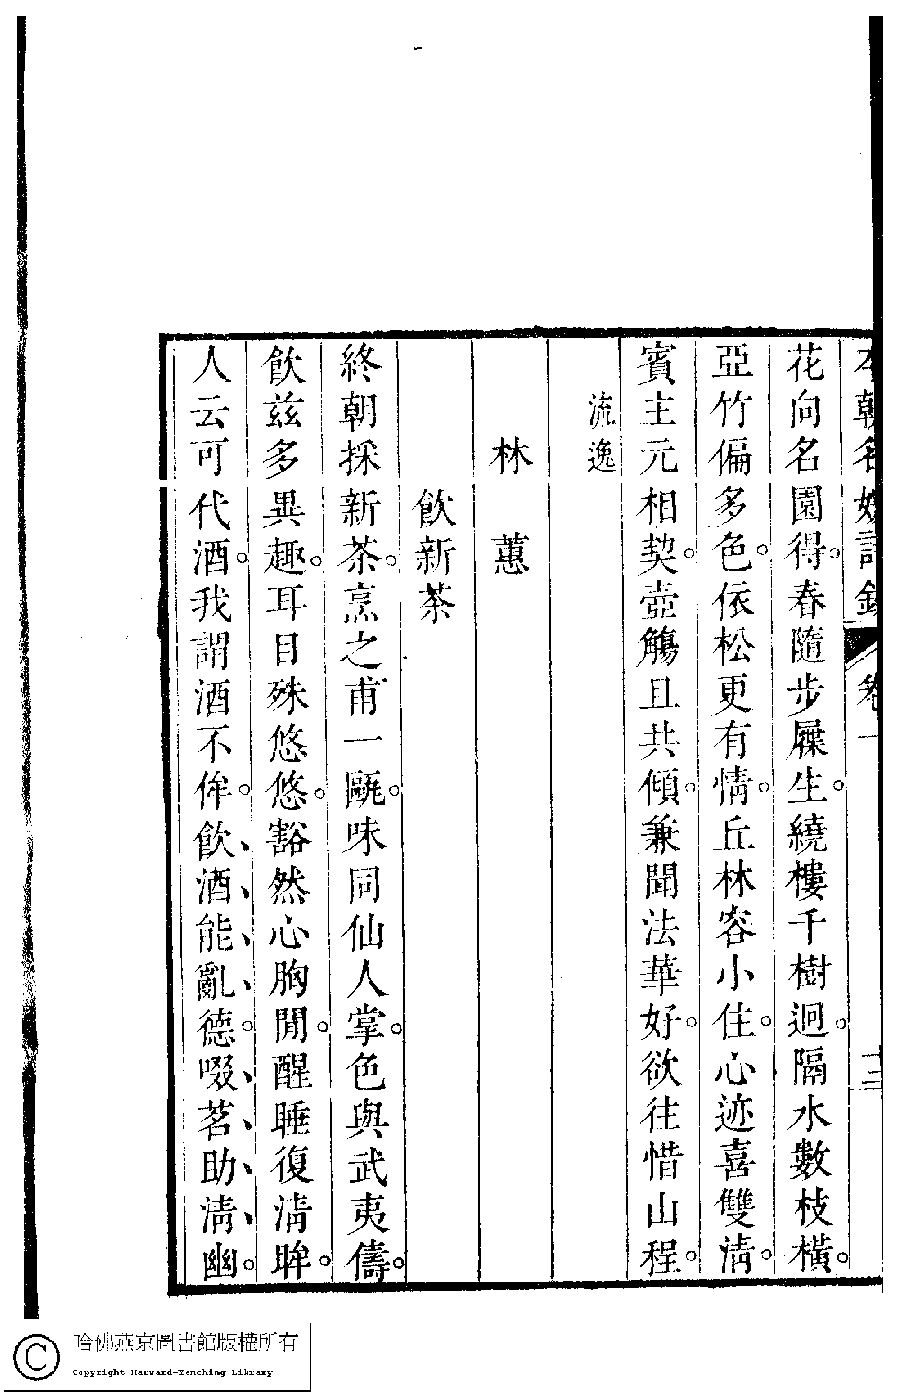 本朝名媛詩鈔 卷一 十三
花向名園得。春隨步屧生。繞樓千樹迥。隔水數枝橫。
亞竹偏多色。依松更有情。丘林容小住。心迹喜雙清。
賓主元相契。壺觴且共傾。兼聞法華好。欲往惜山程。
流逸
林蕙
飲新茶
終朝採新茶。烹之甫一甌。味同仙人掌。色與武夷儔。
飲茲多異趣。耳目殊悠悠。豁然心胸閒。醒睡復清眸。
人云可代酒。我謂酒不侔。飲、酒、能、亂、德。啜、茗、助、清、幽。
哈佛燕京圖書館版權所有
Copyright Harvard-Yenching Library
©